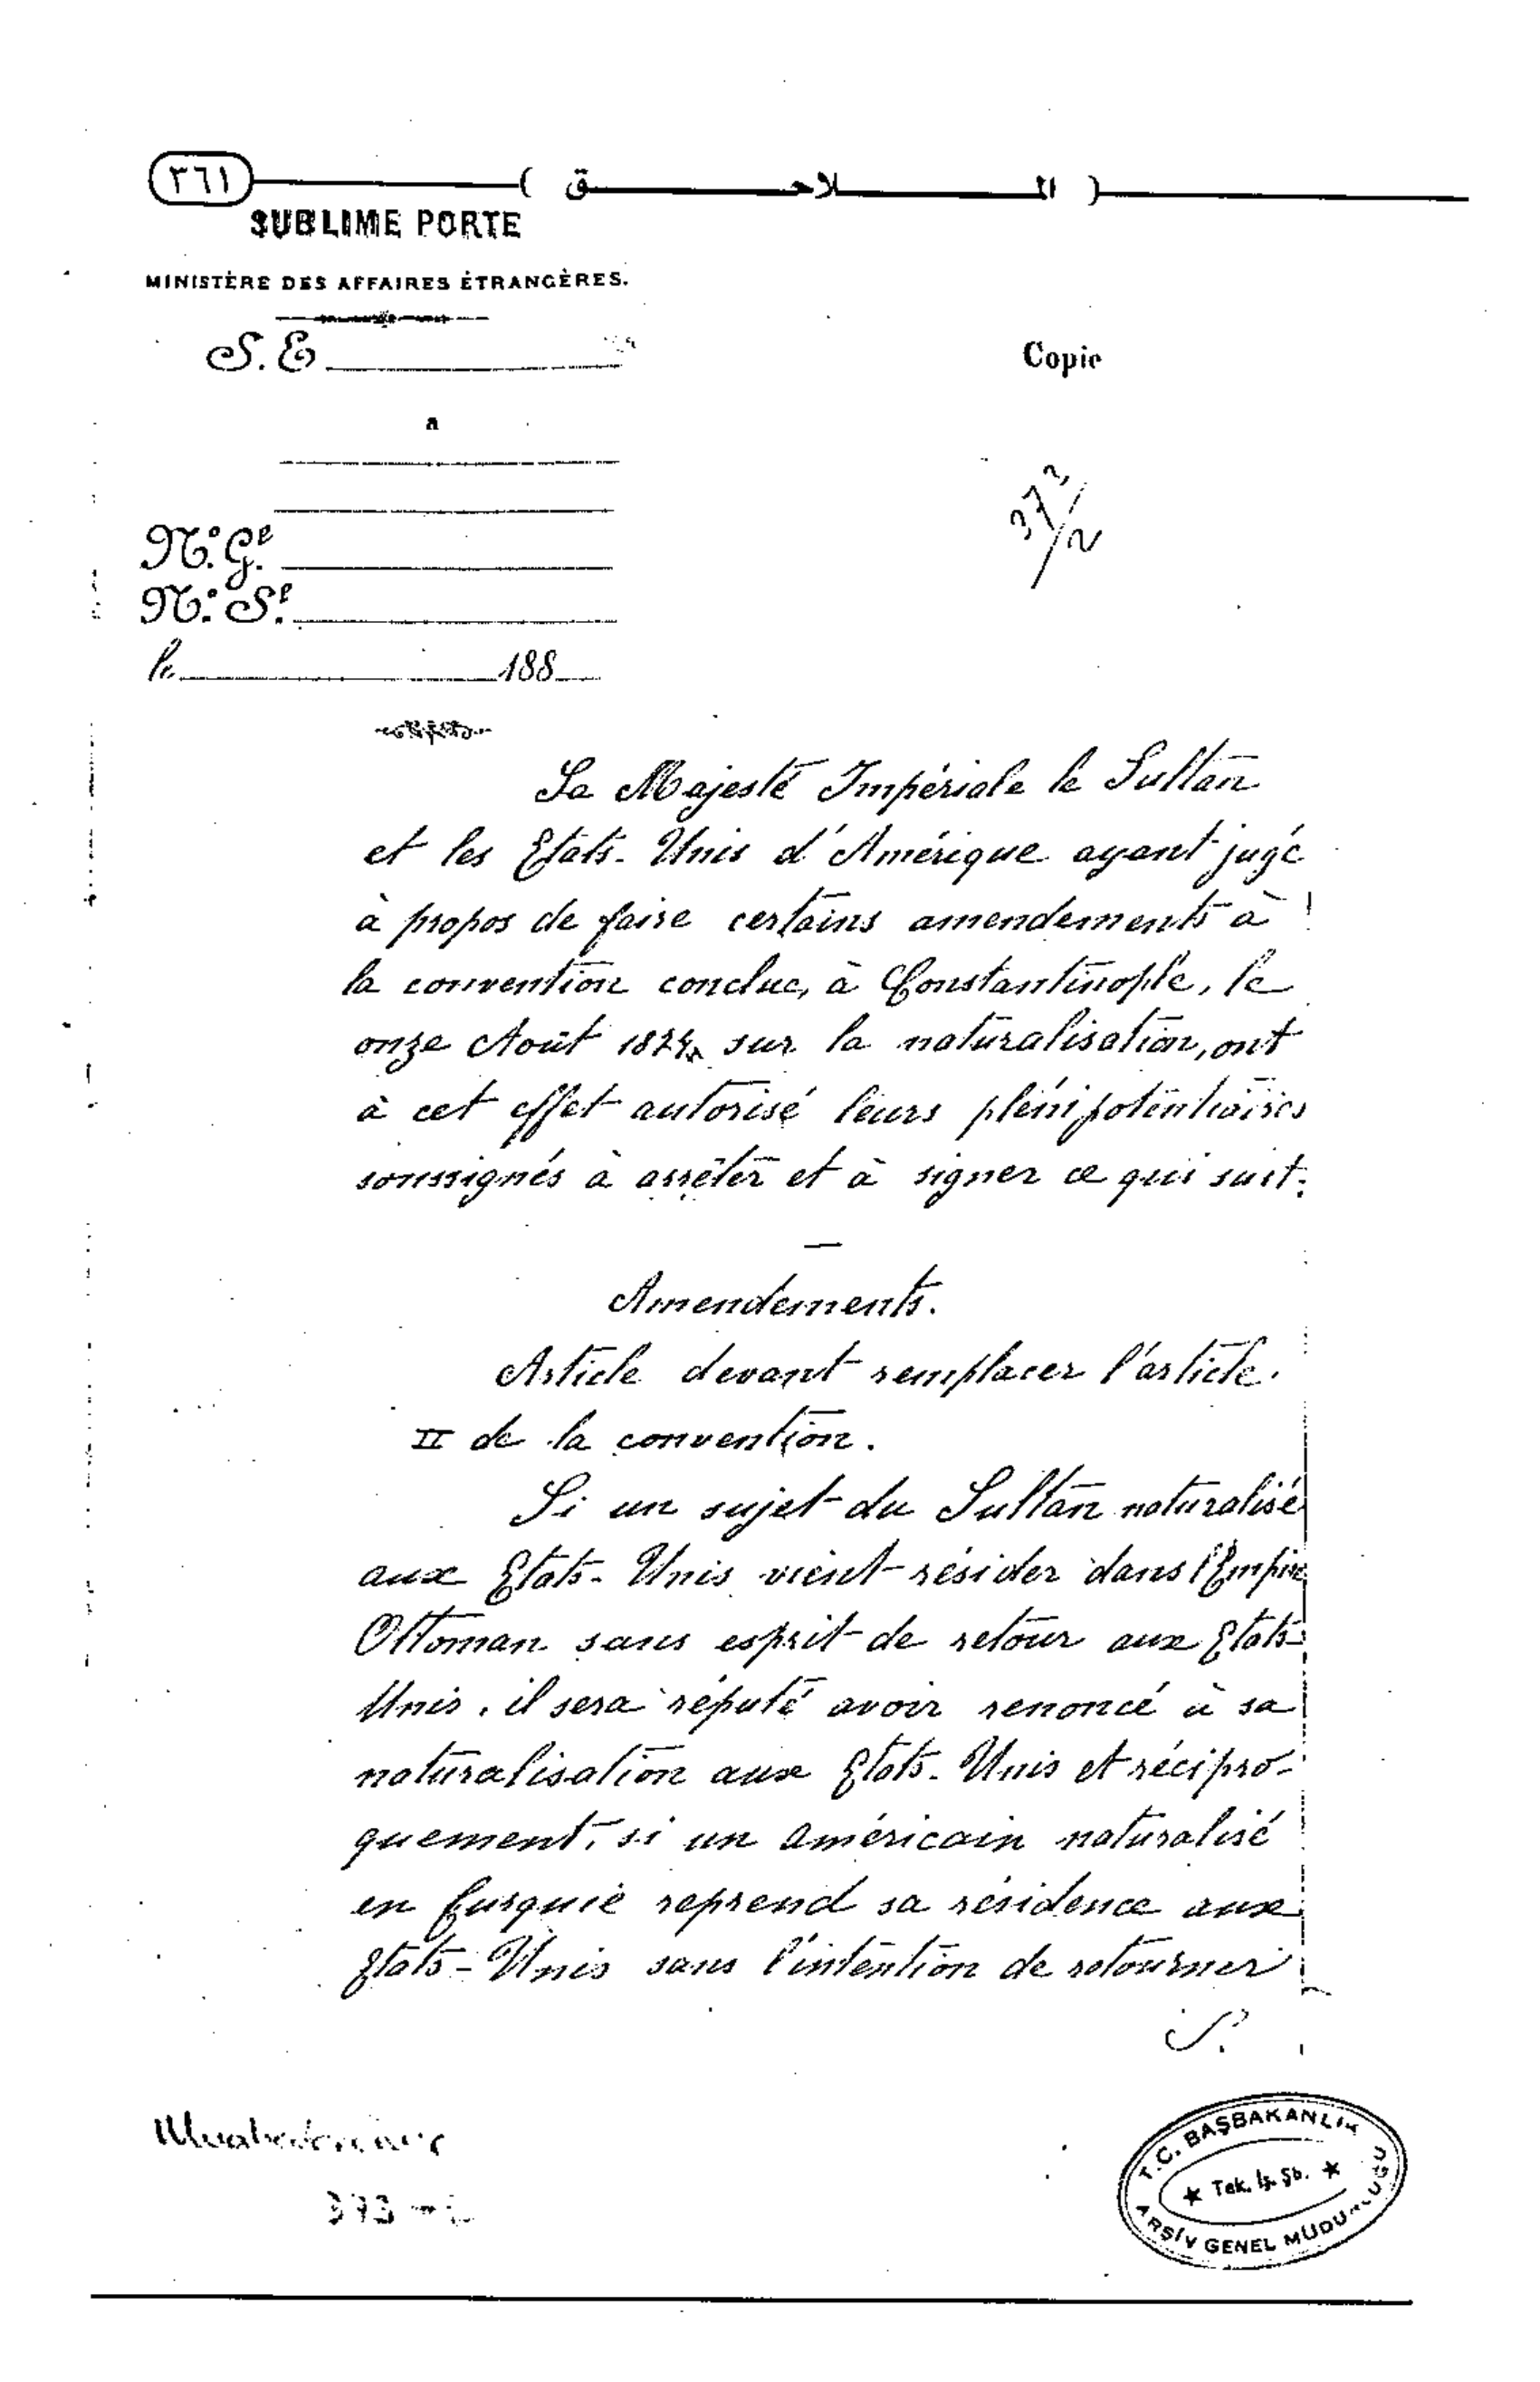 ٣٦١ ( الملاحق )
SUBLIME PORTE
MINISTÈRE DES AFFAIRES ÉTRANGÈRES.
S. E
Copie
a
N.º G.ˡ
N.º S.ˡ
le 188
Sa Majesté Impériale le Sultan
et les Etats-Unis d'Amérique ayant jugé
à propos de faire certains amendements à
la convention conclue, à Constantinople, le
onze Août 1874, sur la naturalisation, ont
à cet effet autorisé leurs plénipotentiaires
soussignés à arrêter et à signer ce qui suit:
Amendements.
Article devant remplacer l'article
II de la convention.
Si un sujet du Sultan naturalisé
aux Etats-Unis vient résider dans l'Empire
Ottoman sans esprit de retour aux Etats
Unis, il sera réputé avoir renoncé à sa
naturalisation aux Etats-Unis et récipro-
quement, si un américain naturalisé
en Turquie reprend sa résidence aux
Etats-Unis sans l'intention de retourner
T.C. BAŞBAKANLIK
★ Tek. İş. Şb. ★
ARŞİV GENEL MÜDÜRLÜĞÜ